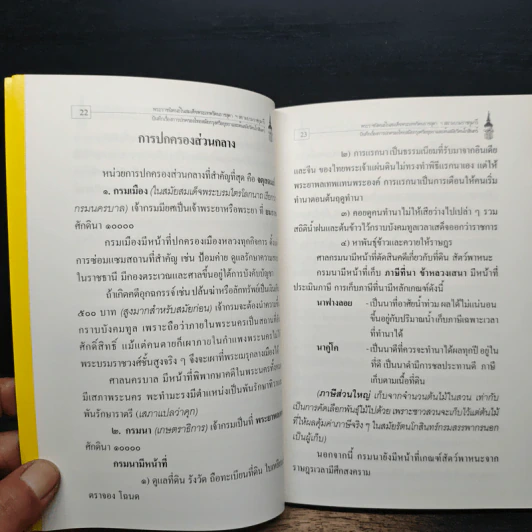 22
การปกครองส่วนกลาง
หน่วยการปกครองส่วนกลางที่สำคัญที่สุด คือ
๑. กรมเมือง (ในสมัยสมเด็จพระบรมไตรโลกนาถ เรียกว่า
กรมนครบาล) เจ้ากรมมียศเป็นเจ้าพระยาหรือพระยา ที่
ศักดินา ๑๐๐๐๐
กรมเมืองมีหน้าที่ปกครองเมืองหลวงทุกกิจการ ตั้งแต่
การซ่อมแซมสถานที่สำคัญ เช่น ป้อมค่าย ดูแลรักษาความสงบ
ในราชธานี มีกองตระเวณและศาลขึ้นอยู่ใต้การบังคับบัญชา
ถ้าเกิดคดีอุกฉกรรจ์ เช่น ปล้นฆ่าหรือลักทรัพย์เป็นเงิน
๕๐๐ บาท (สูงมากสำหรับสมัยก่อน) เจ้ากรมจะต้องนำความขึ้น
กราบบังคมทูล เพราะถือว่าภายในพระนครเป็นสถานที่
ศักดิ์สิทธิ์ แม้แต่คนตายก็เผาภายในกำแพงพระนครไม่ได้
พระบรมราชวงศ์ชั้นสูงจริง ๆ จึงจะเผาที่พระเมรุกลางเมืองได้
ศาลนครบาล มีหน้าที่พิพากษาคดีในพระนครทั้งสิ้น
มีเสภาพระนคร พะทำมะรงมีตำแหน่งเป็นพันรักษาทิวา
พันรักษาราตรี (เสภาแปลว่าคุก)
๒. กรมนา (เกษตราธิการ) เจ้ากรมเป็นที่
ศักดินา ๑๐๐๐๐
กรมนามีหน้าที่
๑) ดูแลที่ดิน รังวัด ถือทะเบียนที่ดิน
ตราจอง โฉนด
23
๒) การแรกนา เป็นธรรมเนียมที่รับมาจากอินเดีย
และจีน ของไทยพระเจ้าแผ่นดินไม่ทรงทำพิธีแรกนาเอง แต่ให้
พระยาพลเทพแทนพระองค์ การแรกนาเป็นการเตือนให้คนเริ่ม
ทำนาตอนต้นฤดูทำนา
๓) คอยดูคนทำนาไม่ให้เสียว่างไปเปล่า ๆ รวม
สถิติน้ำฝนและต้นข้าวไว้กราบบังคมทูลเวลาเสด็จออกว่าราชการ
๔) หาพันธุ์ข้าวและควายให้ราษฎร
ศาลกรมนามีหน้าที่ตัดสินคดีเกี่ยวกับที่ดิน สัตว์พาหนะ
กรมนามีหน้าที่เก็บ ภาษีที่นา ข้าหลวงเสนา มีหน้าที่
ประเมินภาษี การเก็บภาษีที่นามีหลักเกณฑ์ดังนี้
นาฟางลอย - เป็นนาที่อาศัยน้ำท่วม ผลได้ไม่แน่นอน
ขึ้นอยู่กับปริมาณน้ำ เก็บภาษีเฉพาะเวลา
ที่ทำนาได้
นาคู่โค - เป็นนาดีที่ควรจะทำนาได้ผลทุกปี อยู่ใน
ที่ดี เป็นนาดำมีการชลประทานดี ภาษี
เก็บตามเนื้อที่ดิน
(ภาษีส่วนใหญ่ เก็บจากจำนวนต้นไม้ในสวน เท่ากับ
เป็นการคัดเลือกพันธุ์ไม้ไปด้วย เพราะชาวสวนจะเก็บไว้แต่ต้นไม้
ที่ให้ผลคุ้มค่าภาษีจริง ๆ ในสมัยรัตนโกสินทร์กรมสรรพากรนอก
เป็นผู้เก็บ)
นอกจากนี้ กรมนายังมีหน้าที่เกณฑ์สัตว์พาหนะจาก
ราษฎรเวลามีศึกสงคราม